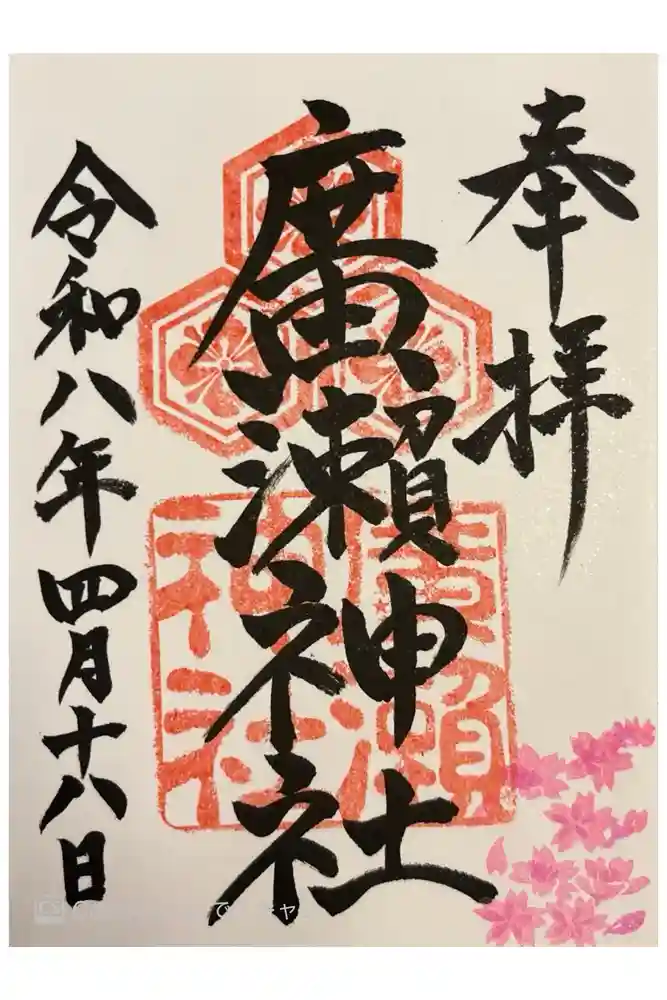 奉拝
廣瀬神社
令和八年四月十八日
廣瀬
神社